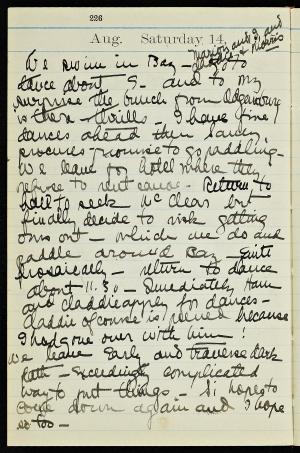 226
Aug. Saturday 14.
Marion, aunt J. and
We swim in Bay — go to
dance about 9 — and to my
surprise the bunch from Ogdensburg
is there — thrills — I have fine
dances ahead then
procures promise to go paddling —
We leave for hotel where they
refuse to rent canoe — Return to
hall to seek Mc Clear but
finally decide to risk getting
ours out — which we do and
paddle around Bay — Quite
prosaically — return to dance
about 11.30 — Immediately Ham
and claddie apply for dances —
claddie of course is peeved because
I had gone over with him!
We leave Early and traverse dark
path — Exceedingly complicated
way to put things — Si hopes to
come down again and I hope
so too —